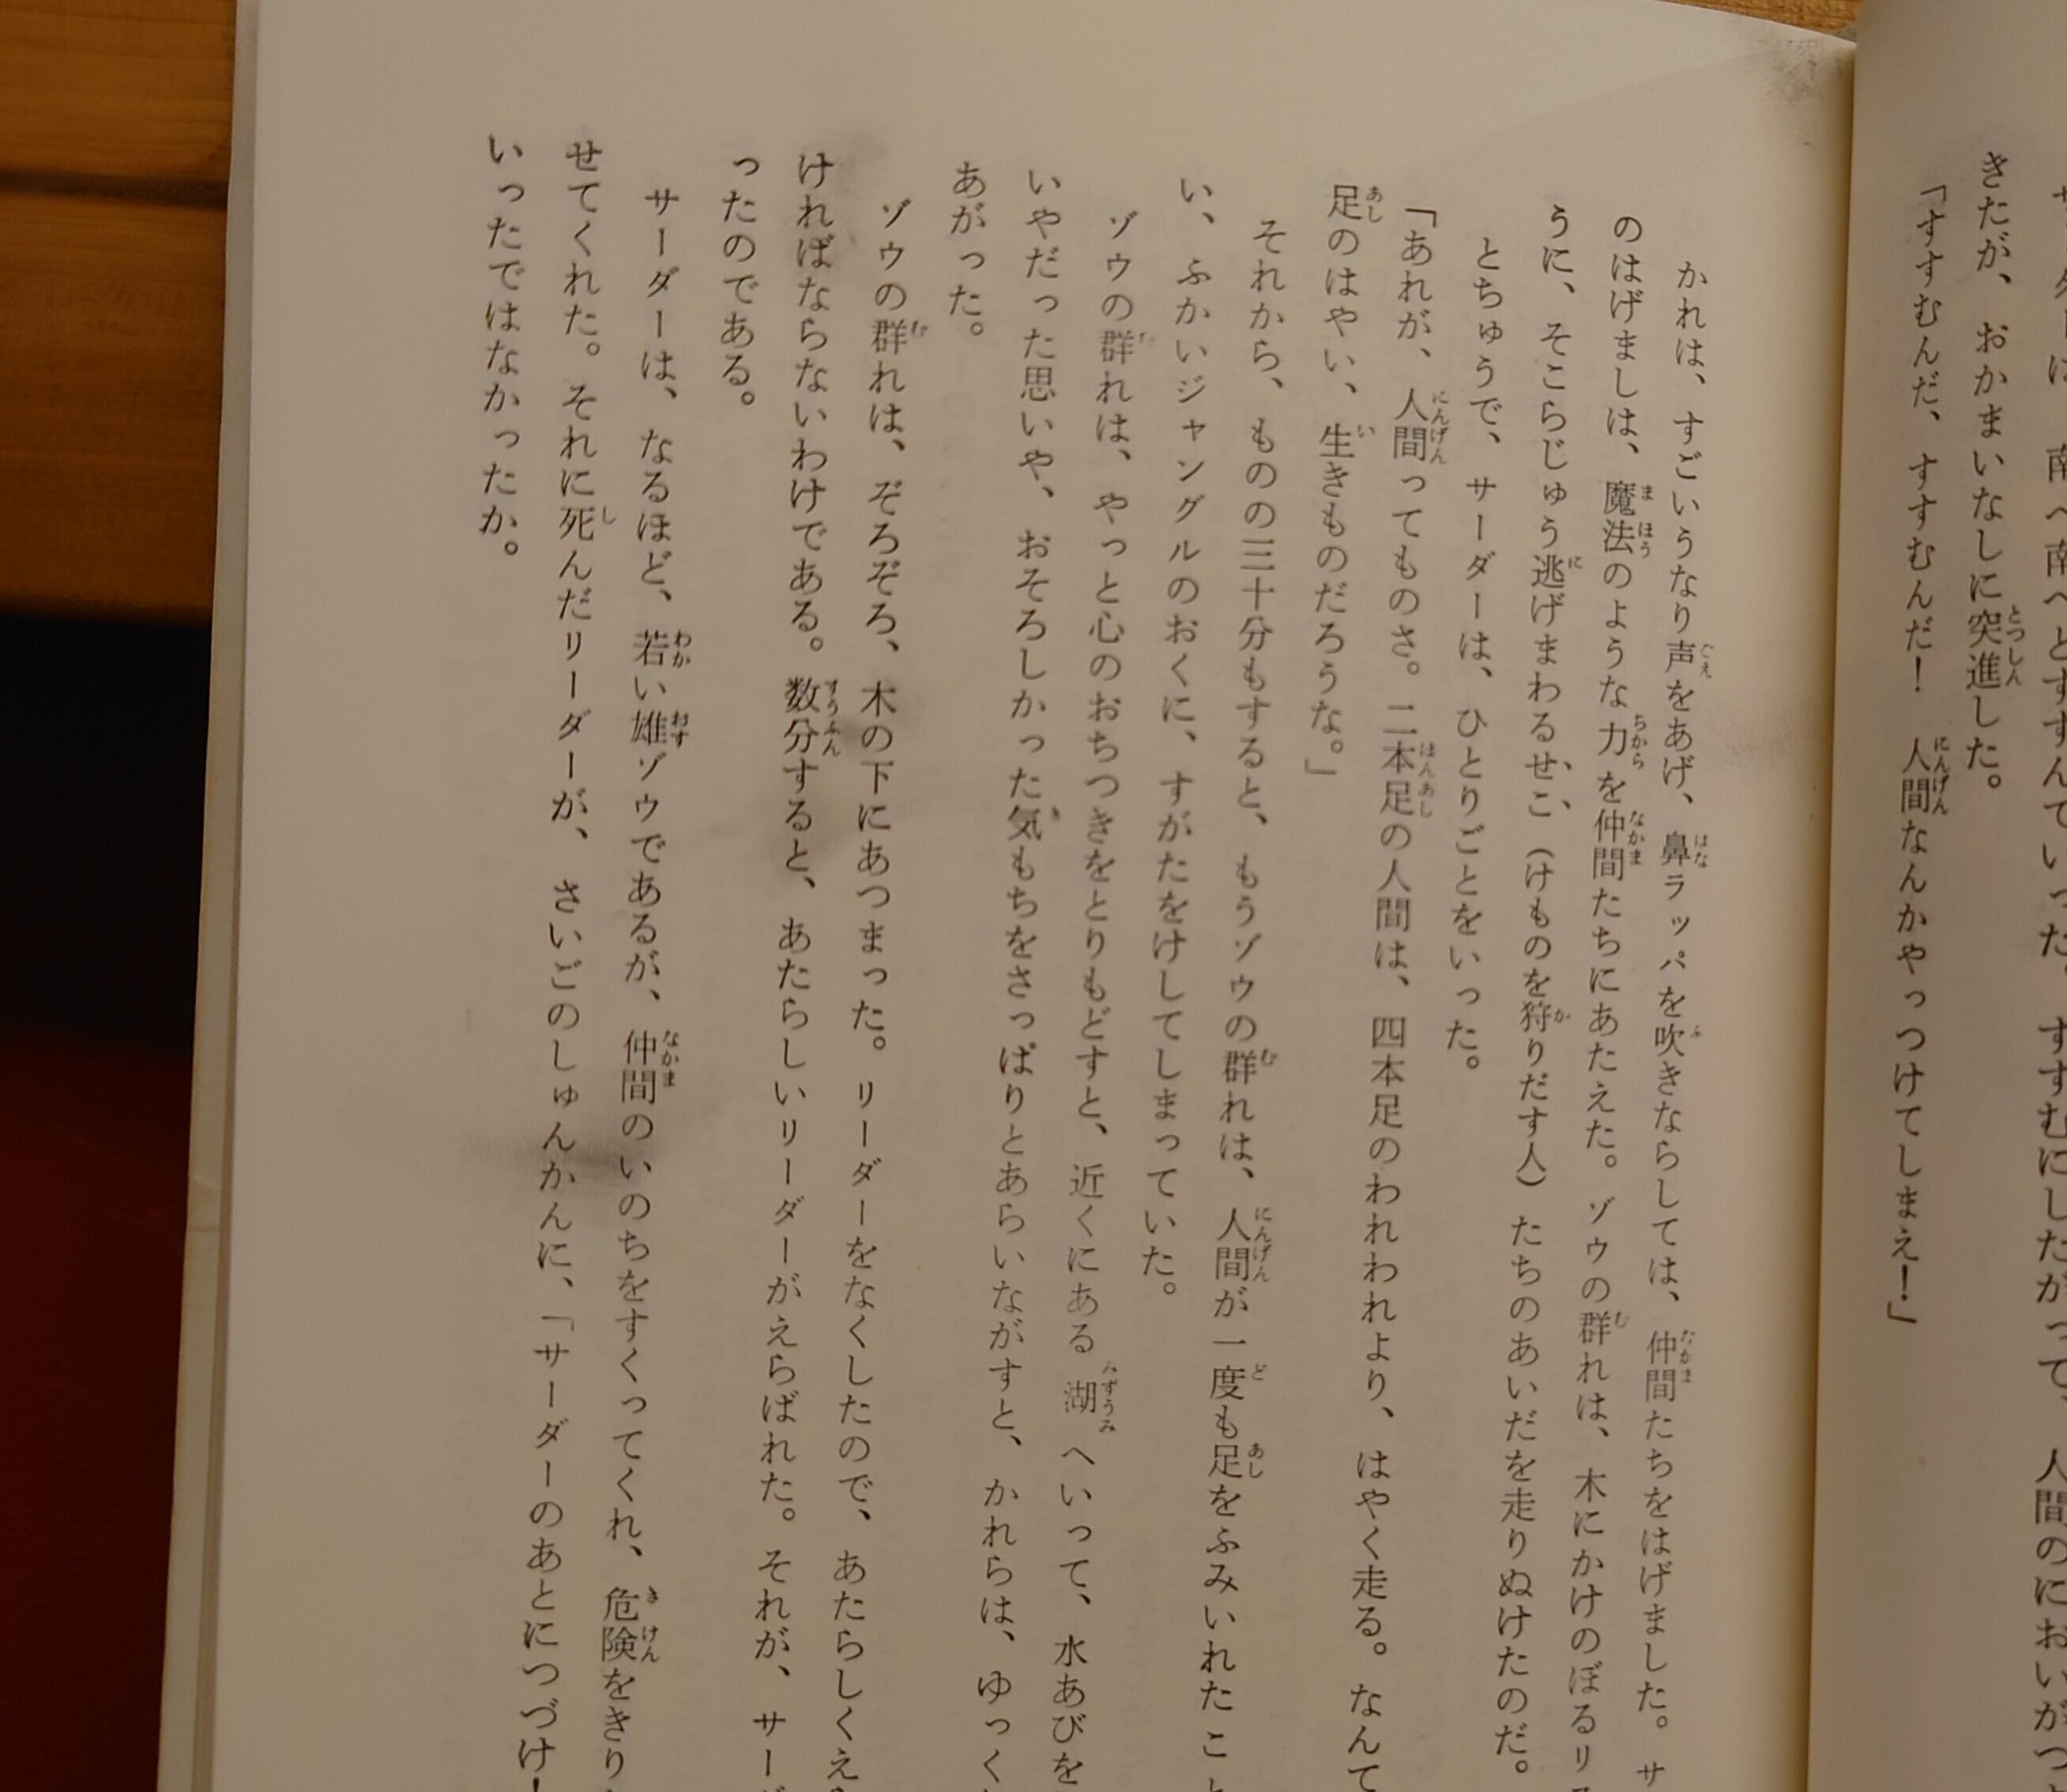 南へ南へとすすんでいった。すすむにしたがって、人間のにおいがつ
きたが、おかまいなしに突進した。
「すすむんだ、すすむんだ！　人間なんかやっつけてしまえ！」
かれは、すごいうなり声をあげ、鼻ラッパを吹きならしては、仲間たちをはげました。サ
のはげましは、魔法のような力を仲間たちにあたえた。ゾウの群れは、木にかけのぼるリ
うに、そこらじゅう逃げまわるせこ（けものを狩りだす人）たちのあいだを走りぬけたのだ。
とちゅうで、サーダーは、ひとりごとをいった。
「あれが、人間ってものさ。二本足の人間は、四本足のわれわれより、はやく走る。なんて
足のはやい、生きものだろうな。」
それから、ものの三十分もすると、もうゾウの群れは、人間が一度も足をふみいれたこと
い、ふかいジャングルのおくに、すがたをけしてしまっていた。
ゾウの群れは、やっと心のおちつきをとりもどすと、近くにある湖へいって、水あびを
いやだった思いや、おそろしかった気もちをさっぱりとあらいながすと、かれらは、ゆっく
あがった。
ゾウの群れは、ぞろぞろ、木の下にあつまった。リーダーをなくしたので、あたらしくえ
ければならないわけである。数分すると、あたらしいリーダーがえらばれた。それが、サー
ったのである。
サーダーは、なるほど、若い雄ゾウであるが、仲間のいのちをすくってくれ、危険をきり
せてくれた。それに死んだリーダーが、さいごのしゅんかんに、「サーダーのあとにつづけ！
いったではなかったか。